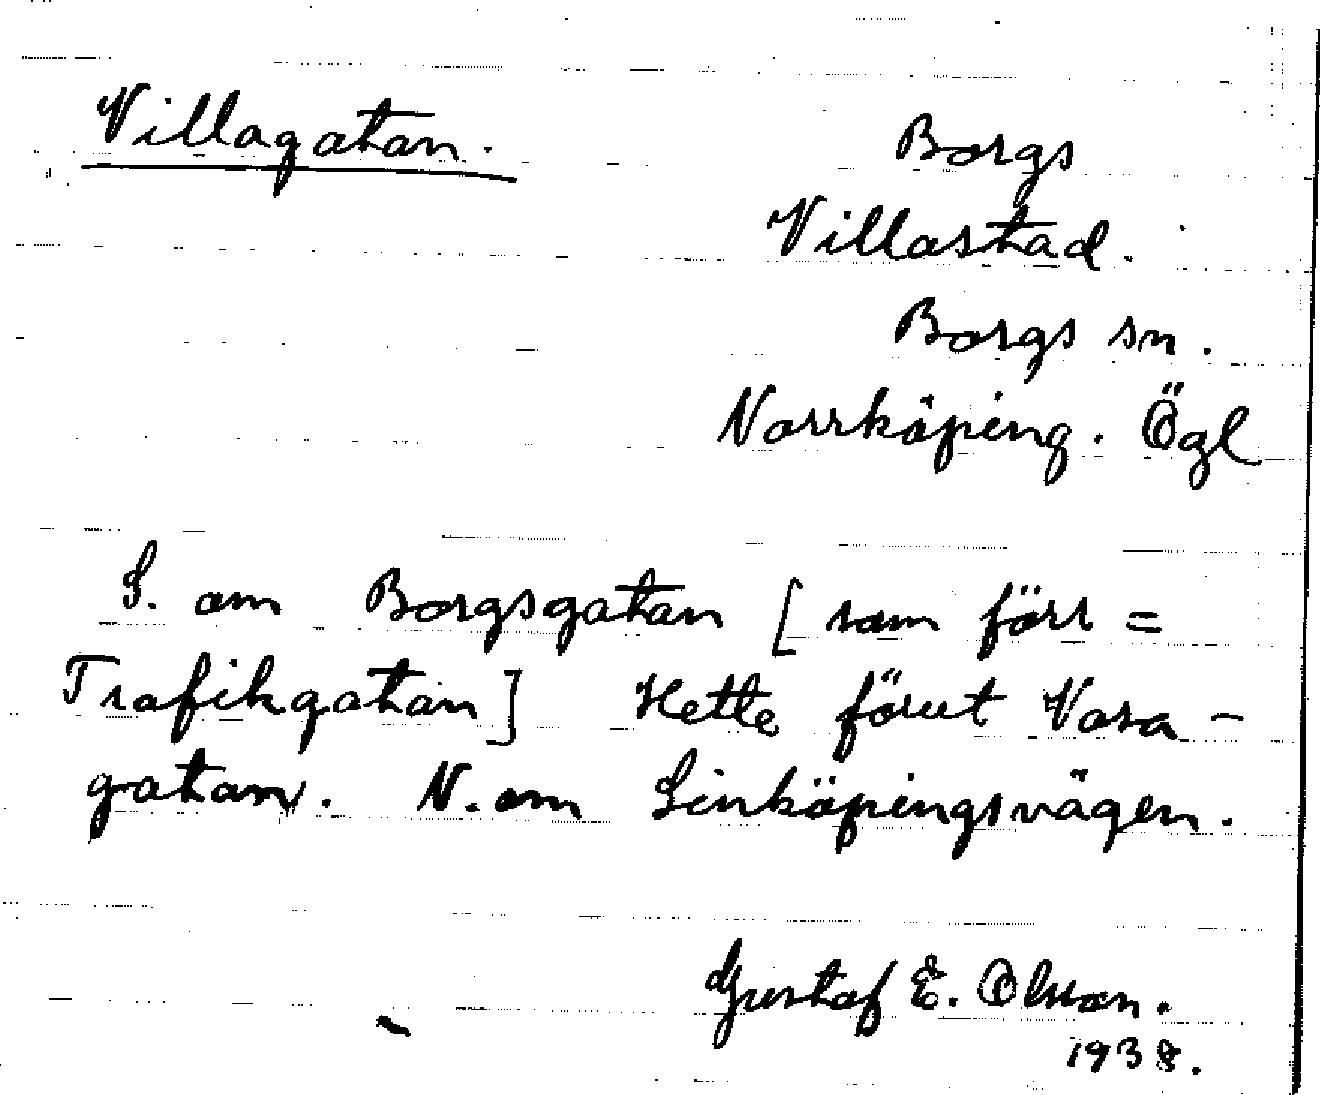 Villagatan.
Borgs
Villastad.
Borgs sn.
Norrköping. Ögl
S. om Borgsgatan [som förr =
Trafikgatan] Hette förut Vasa-
gatan. N. om Linköpingsvägen.
Gustaf E. Olsson.
1938.